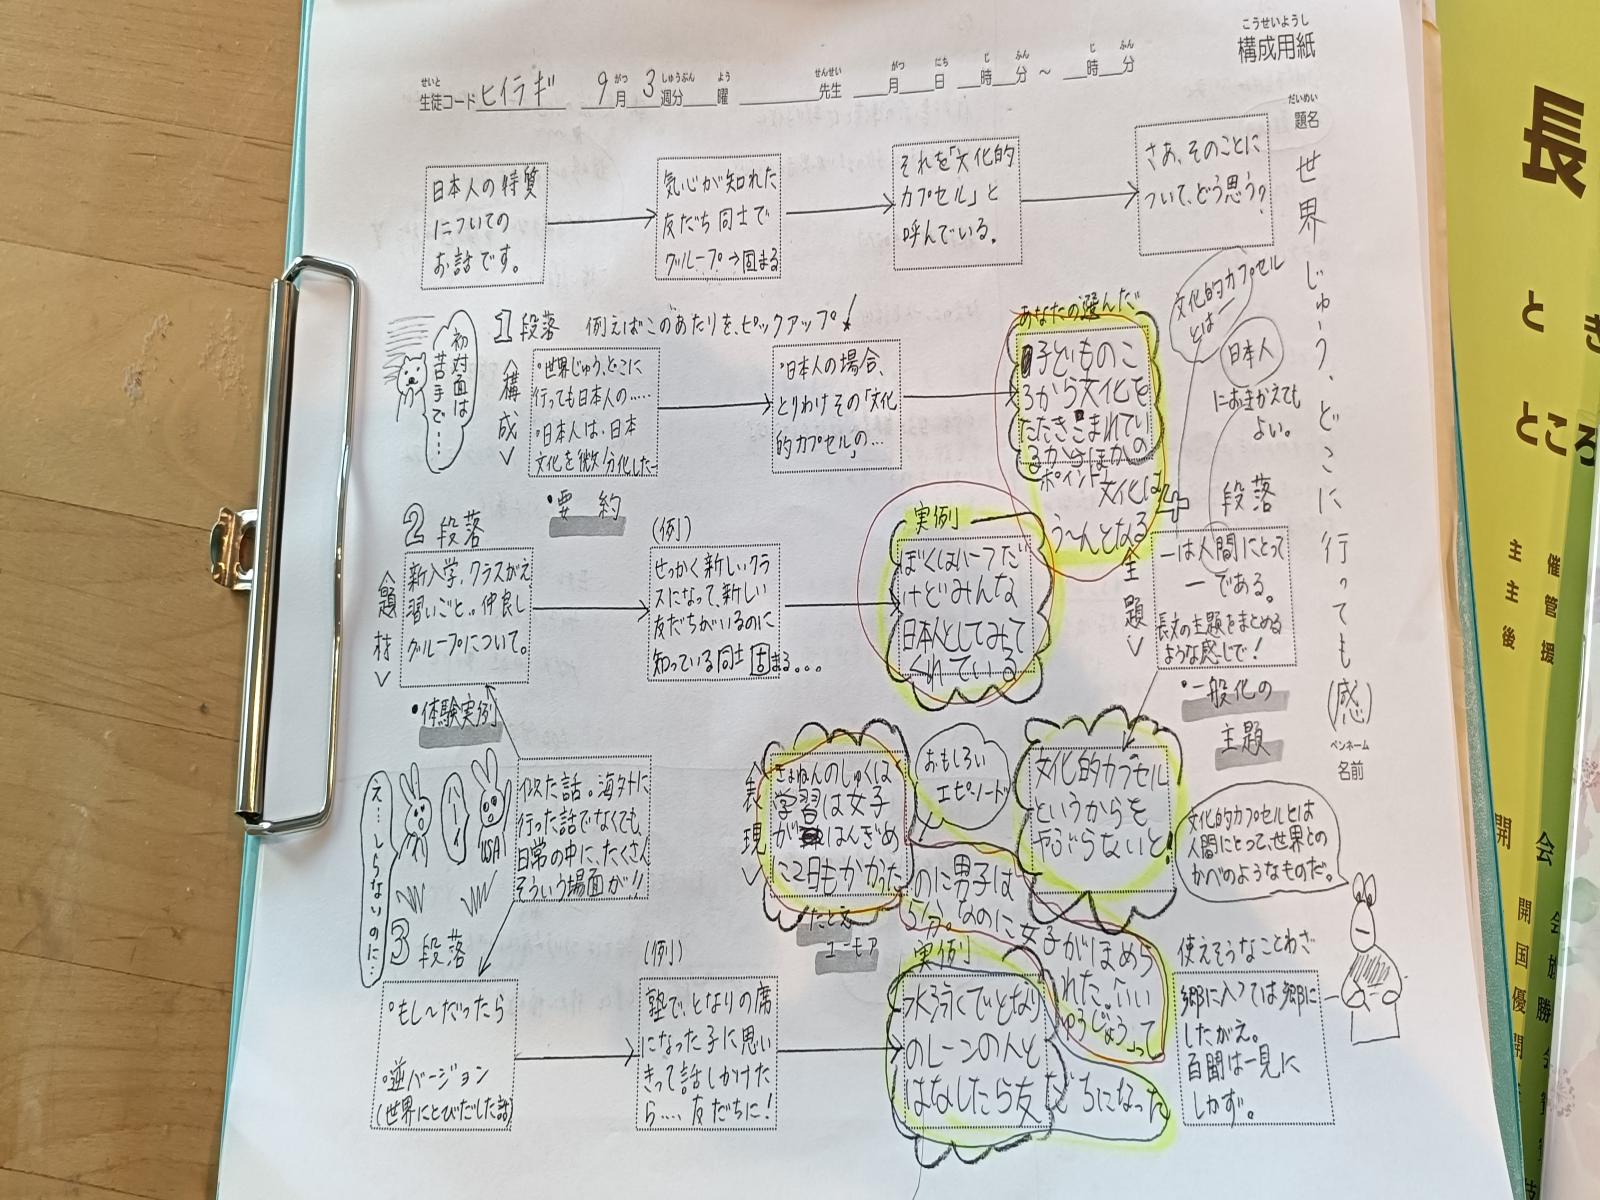 こうせいようし
構成用紙
せいと がつ しゅうぶん よう せんせい がつ にち じ ふん じ ふん
生徒コード ヒイラギ 9月 3週分 曜 先生 月 日 時 分 ～ 時 分
だいめい
題名
世界じゅう、どこに行っても(感)
ペンネーム
名前
日本人の特質
についての
お話です。
気心が知れた
友だち同士で
グループ→固まる
それを「文化的
カプセル」と
呼んでいる。
さあ、そのことに
ついて、どう思う?
1段落 例えばこのあたりを、ピックアップ!
初対面は
苦手で…
<構成>
・世界じゅう、どこに
行っても日本人の……
・日本人は、日本
文化を微分化した…
・要約
・日本人の場合、
とりわけその「文化
的カプセル」の…
あなたの選んだ
子どものこ
ろから文化を
たたきこまれてい
るからほかの
ポイント
文化は
う〜んとなる
文化的カプセル
とは
日本人
におきかえても
よい。
2段落
<題材>
新入学、クラスがえ
習いごと…仲良し
グループについて。
・体験実例
(例)
せっかく新しいクラ
スになって、新しい
友だちがいるのに
知っている同士固まる...
実例
ぼくはハーフだ
けどみんな
日本人としてみて
くれている
4段落
<主題>
ーは人間にとって
ーである。
長文の主題をまとめる
ような感じで!
・一般化の
主題
文化的カプセル
というからを
やぶらないと!
文化的カプセルとは
人間にとって、世界との
かべのようなものだ。
え…しらないのに…
ハーイ
USA
似た話。海外に
行った話でなくても、
日常の中に、たくさん
そういう場面が!!
<表現>
おもしろい
エピソード
きょねんのしゅくは
学習は女子
がはんぎめ
に2日もかかった
のに男子は
5分。なのに女子がほめら
れた。「いい
ゆうじょう」って
たとえ
ユーモア
3段落
・もし〜だったら
・逆バージョン
(世界にとびだした話)
(例)
塾で、となりの席
になった子に思い
きって話しかけた
ら…、友だちに!
実例
水泳でとなり
のレーンの人と
はなしたら友だちになった
使えそうなことわざ
郷に入っては郷に
したがえ。
百聞は一見に
しかず。
長
とき
ところ
主催
主管
後援